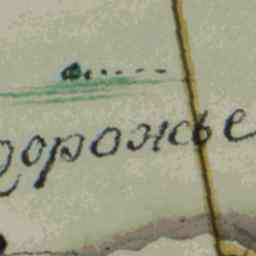 дорожье